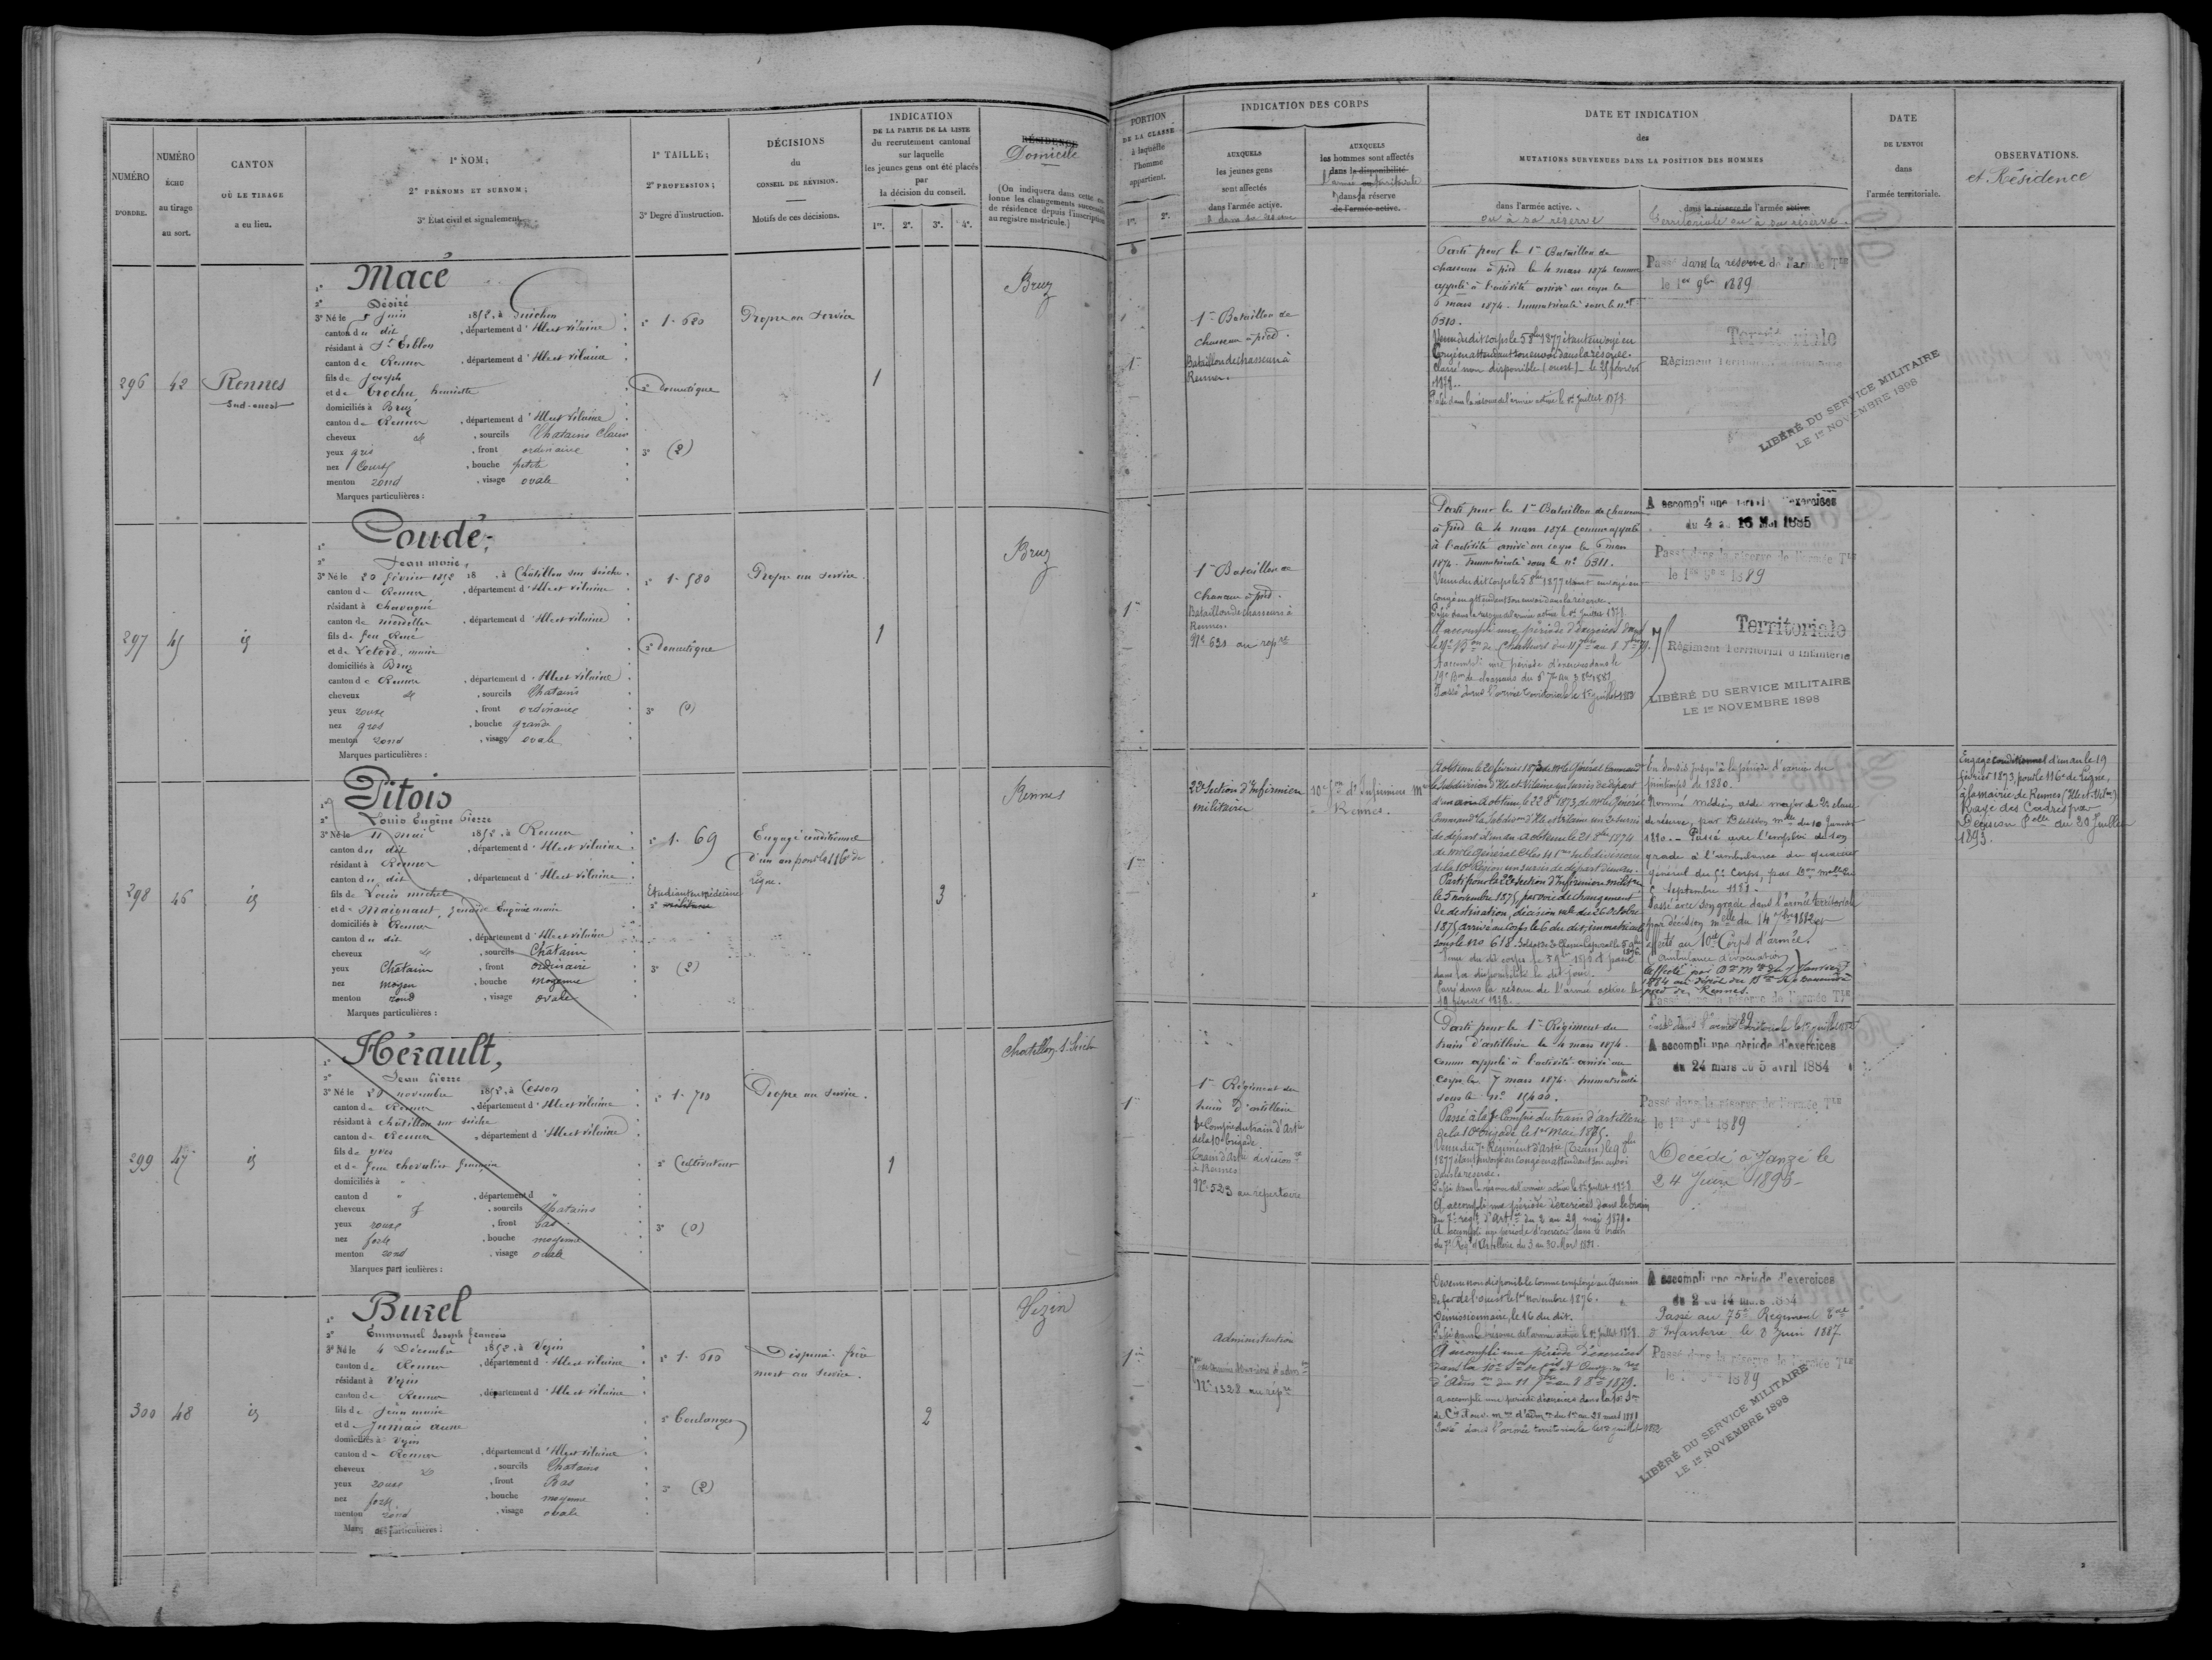 NUMÉRO
D'ORDRE.
NUMÉRO
ÉCHU
au tirage
au sort.
CANTON
OÙ LE TIRAGE
a eu lieu.
1° NOM;
2° PRÉNOMS ET SURNOM;
3° État civil et signalement.
1° TAILLE;
2° PROFESSION;
3° Degré d'instruction.
DÉCISIONS
du
CONSEIL DE RÉVISION.
Motifs de ces décisions.
INDICATION
DE LA PARTIE DE LA LISTE
du recrutement cantonal
sur laquelle
les jeunes gens ont été placés
par
la décision du conseil.
1re. 2e. 3e. 4e.
RÉSIDENCE
Domicile
(On indiquera dans cette
lonne les changements
de résidence depuis l'inscription
au registre matricule.)
PORTION
DE LA CLASSE
à laquelle
l'homme
appartient.
1re. 2e.
INDICATION DES CORPS
AUXQUELS
les jeunes gens
sont affectés
dans l'armée active.
AUXQUELS
les hommes sont affectés
dans la disponibilité
dans la réserve
de l'armée active.
DATE ET INDICATION
des
MUTATIONS SURVENUES DANS LA POSITION DES HOMMES
dans l'armée active.
ou à sa réserve
dans la réserve de l'armée active.
Territoriale ou à sa réserve.
DATE
DE L'ENVOI
dans
l'armée territoriale.
OBSERVATIONS.
et Résidence
296
42
Rennes
Sud-ouest
1° Macé
2° Désiré
3° Né le 5 juin 1852, à Guichen
canton du dit, département d'Ille et Vilaine
résidant à St Erblon
canton de Rennes, département d'Ille et Vilaine
fils de Joseph
et de Trochu, henriette
domiciliés à Bruz
canton de Rennes, département d'Ille et Vilaine
cheveux et, sourcils Chatains clairs
yeux gris, front ordinaire
nez Court, bouche petite
menton rond, visage ovale
Marques particulières :
1° 1. 680
2° Domestique
3° (2)
Propre au service
1
Bruz
1er
1er Bataillon de
chasseurs à pied.
Bataillon de chasseurs à
Rennes.
Parti pour le 1er Bataillon de
chasseurs à pied le 4 mars 1874 comme
appelé à l'activité arrivé au corps le
6 mars 1874. Immatriculé sous le n°
6310.
Venu du dit corps le 5 8bre 1877 étant envoyé en
Congé en attendant son envoi dans la réserve.
Classé non disponible (ouest) le 25 janvier
1878.
Passé dans la réserve de l'armée active le 1er Juillet 1878
Passé dans la réserve de l'armée Tle
le 1er 9bre 1889
Territoriale
Régiment Territorial d'Infanterie
LIBÉRÉ DU SERVICE MILITAIRE
LE 1er NOVEMBRE 1898
297
45
id
1° Coudé,
2° Jean marie,
3° Né le 20 février 1852 18 , à Châtillon sur Seiche.
canton de Rennes, département d'Ille et Vilaine
résidant à Chavagne
canton de mordelles, département d'Ille et Vilaine
fils de feu René
et de Letord, marie
domiciliés à Bruz
canton de Rennes, département d'Ille et Vilaine
cheveux et, sourcils Chatains
yeux roux, front ordinaire
nez gros, bouche grande
menton rond, visage ovale
Marques particulières :
1° 1. 580
2° Domestique
3° (0)
Propre au service.
1
Bruz
1er
1er Bataillon de
Chasseurs à pied.
Bataillon de chasseurs à
Rennes.
N° 630 au répre
Parti pour le 1er Bataillon de chasseurs
à pied le 4 mars 1874 comme appelé
à l'activité arrivé au corps le 6 mars
1874. Immatriculé sous le n° 6311.
Venu du dit corps le 5 8bre 1877 étant envoyé en
congé en attendant son envoi dans la réserve.
Passé dans la réserve de l'armée active le 1er Juillet 1878
A accompli une période d'exercices dans
A accompli une période d'exercices dans le
Passé dans l'armée territoriale le 1er juillet 1882
A accompli une période d'exercices
du 4 au 16 Mai 1885
Passé dans la réserve de l'armée Tle
le 1er 9bre 1889
Territoriale
Régiment Territorial d'Infanterie
LIBÉRÉ DU SERVICE MILITAIRE
LE 1er NOVEMBRE 1898
298
46
id
1° Pitois
2° Louis Eugène Pierre
3° Né le 11 mai 1852, à Rennes
canton du dit, département d'Ille et Vilaine
résidant à Rennes
canton du dit, département d'Ille et Vilaine
fils de Louis michel
et de Maignant, Eugénie marie
domiciliés à Rennes
canton du dit, département d'Ille et Vilaine
cheveux et, sourcils Chatain
yeux Chatain, front ordinaire
nez moyen, bouche moyenne
menton rond, visage ovale
Marques particulières :
1° 1. 69
Etudiant en médecine
2° militaire
3° (2)
Engagé conditionnel
d'un an pour le 116e de
ligne.
3
Rennes
1er
22e Section d'Infirmiers
militaires
10e Son d'Infirmiers
à Rennes.
A obtenu le 20 février 1873 de Mr le Général Command
la subdivision d'Ille et Vilaine un sursis de départ
d'un an. A obtenu le 22 8bre 1873, de Mr le Général
de départ d'un an. A obtenu le 21 8bre 1874
de Mr le Général
de la 10e Région un sursis de départ d'un an.
Parti pour la 22e Section d'Infirmiers militres
le 5 novembre 1875, par voie de changement
de destination, décision mlle du 26 octobre
1875, arrivé au Corps le 6 du dit, immatriculé
sous le no 618.
dans la disponibilité le dit jour.
Passé dans la réserve de l'armée active le
19 février 1878.
printemps de 1880.
Nommé médecin aide major de 2e classe
de réserve, par Décision mlle du 10 Janvier
1880. Passé avec l'emploi de son
grade à l'ambulance du quartier
général du 5e Corps, par Don mlle du
5 Septembre 1881.
Passé avec son grade dans l'armée territoriale
par décision mlle du 14 1882 et
affecté au 10e Corps d'armée.
(ambulance d'évacuation)
Passé dans la réserve de l'armée Tle
Engagé conditionnel d'un an le 19
février 1873, pour le 116e de Ligne,
à la mairie de Rennes (Ille et Vilne)
Rayé des Cadres par
Décision Polle du 30 Juillet
1893.
299
47
id
1° Hérault,
2° Jean Pierre
3° Né le novembre 1852, à Cesson
canton de Rennes, département d'Ille et Vilaine
résidant à châtillon sur seiche
canton de Rennes, département d'Ille et Vilaine
fils de yves
et de feue chevalier
domiciliés à "
canton d ", département d "
cheveux et, sourcils Chatains
yeux roux, front bas
nez fort, bouche moyenne
menton rond, visage ovale
Marques particulières :
1° 1. 710
2° Cultivateur
3° (0)
Propre au service.
1
Chatillon s. Seiche
1er
1er Régiment du
train d'artillerie
Compie du train d'Artie
de la 10e brigade.
à Rennes
N° 523 au répertoire
Parti pour le 1er Régiment du
train d'artillerie le 4 mars 1874
comme appelé à l'activité arrivé au
corps le 7 mars 1874. Immatriculé
sous le n° 15400.
Passé à la Compie du train d'artillerie
de la 10e brigade le 1er Mai 1875.
1877 étant envoyé en congé en attendant son envoi
dans la réserve.
Passé dans la réserve de l'armée active le 1er Juillet 1878
A accompli une période d'exercices dans le train
du 7e régt d'Artie du 2 au 29 mai 1879.
A accompli une période d'exercices dans le train
du 7e Régt d'Artillerie du 3 au 30 Mars 1881.
Passé dans l'armée territoriale le 1er juillet 1882
A accompli une période d'exercices
du 24 mars au 5 avril 1884
Passé dans la réserve de l'armée Tle
le 1er 9bre 1889
Décédé à Janzé le
24 Juin 1895
300
48
id
1° Burel
2° Emmanuel Joseph françois
3° Né le 4 Décembre 1852, à Vezin
canton de Rennes, département d'Ille et Vilaine
résidant à Vezin
canton de Rennes, département d'Ille et Vilaine
fils de Jean marie
et de Jumais anne
domiciliés à Vezin
canton de Rennes, département d'Ille et Vilaine
cheveux et, sourcils Chatains
yeux roux, front Bas
nez fort, bouche moyenne
menton rond, visage ovale
Marques particulières :
1° 1. 610
2° Boulanger
3° (2)
Dispensé frère
mort au service.
2
Vezin
1er
Administration
N° 1328 au répre
Devenu non disponible comme employé au Chemin
de fer de l'ouest le 1er novembre 1876.
Démissionnaire, le 16 du dit.
Passé dans la réserve de l'armée active le 1er Juillet 1878
A accompli une période d'exercices
A accompli une période d'exercices dans la
Passé dans l'armée territoriale le 1er juillet 1882
A accompli une période d'exercices
du 2 au 14 mars 1884
Passé au 75e Régiment Tal
d'Infanterie le 2 Juin 1887
Passé dans la réserve de l'armée Tle
le 1er 9bre 1889
LIBÉRÉ DU SERVICE MILITAIRE
LE 1er NOVEMBRE 1898